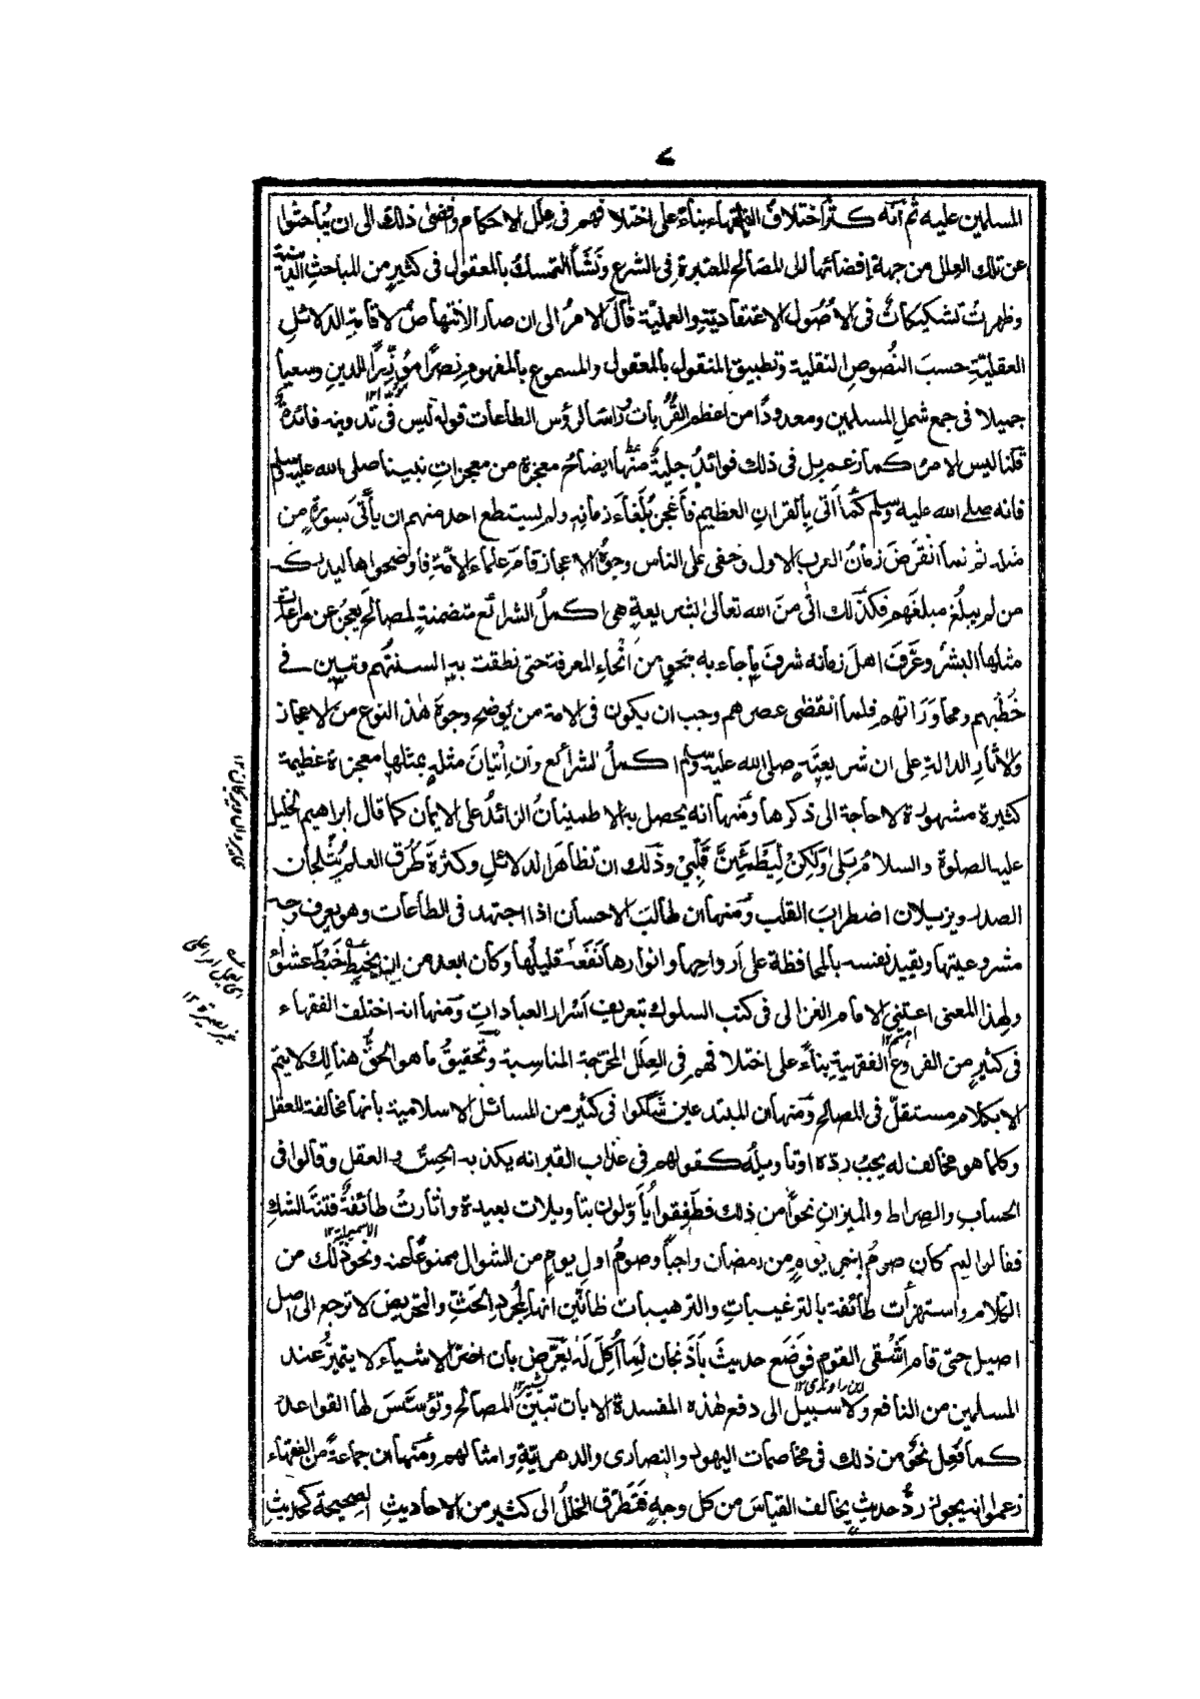 ٧
المسلمين عليه ثم انه كثر اختلاف الفقهاء بناءً على اختلافهم فى علل الاحكام وافضى ذلك الى ان يتباحثوا
عن تلك العلل من جهة إفضائها الى المصالح المعتبرة فى الشرع ونَشَأ التمسك بالمعقول فى كثيرٍ من المباحثِ الدينية
وظهرتْ تشكيكاتٌ فى الأُصُول الاعتقاديّةِ والعمليّة فآلَ الامرُ الى ان صار الانتهاضُ لاقامة الدلائلِ
العقليّةِ حسبَ النُّصوصِ النقلية وتطبيق المنقول بالمعقول والمسموع بالمفهوم نصرًا مؤزّرًا للدين وسعيا
جميلا فى جمع شملِ المسلمين ومعدودًا من اعظم القُرُبات ورأسا لرؤس الطاعات قوله ليس فى تدوينه فائدةٌ
قلنا ليس الامرُ كما زعم بل فى ذلك فوائدُ جليةٌ منها ايضاحُ معجزة من معجزاتِ نبينا صلى الله عليه وسلم
فانه صلى الله عليه وسلم كما اتى بالقرانِ العظيم فأعجز بُلَغاءَ زمانِه ولم يستطع احد منهم ان يأتى بسورةٍ من
مثله ثم لما انقرضَ زمانُ العرب الاول وخفى على الناس وجوهُ الاعجاز قام علماء الأمّةِ فاوضحوها ليدركه
من لم يبلُغ مبلغهم فكذلك اتى من الله تعالى بشريعةٍ هى اكملُ الشرائع متضمنةٍ لمصالحَ يعجزُ عن مراعات
مثلها البشرُ وعَرَفَ اهلُ زمانه شرفَ ما جاء به بنحوٍ من أنحاءِ المعرفة حتى نطقت به السنتُهم وتبين فى
خُطَبهم ومحاوراتهم فلما انقضى عصرهم وجب ان يكون فى الامة من يُوضِح وجوهَ هذا النوع من الاعجاز
والاثارِ الدالةِ على ان شريعتَه صلى الله عليه وسلم اكملُ الشرائع وان اتيانَ مثله بمثلها معجزة عظيمة
كثيرة مشهورة لاحاجة الى ذكرها ومنها انه يحصل به الاطمينانُ الزائدُ على الايمان كما قال ابراهيم الخليل
عليه الصلوة والسلام بَلىٰ وَلٰكِنْ لِيَطْمَئِنَّ قَلْبِيْ وذلك ان تظاهرَ الدلائلِ وكثرةَ طُرُق العلم يُثلجان
الصدر ويزيلان اضطرابَ القلب ومنها ان طالبَ الاحسان اذا اجتهد فى الطاعات وهو يعرف وجه
مشروعيتها ويقيد نفسه بالمحافظة على ارواحِها وانوارها نَفَعَه قليلُها وكان ابعد من ان يخبِطَ خَبْطَ عشواء
ولهذا المعنى اعتنى الامام الغزالى فى كتب السلوك بتعريف اَسْرار العباداتِ ومنها انه اختلف الفقهاء
فى كثيرٍ من الفروع الفقهيةِ بناءً على اختلافهم فى العلل المخرّجة المناسبة وتحقيقُ ما هو الحقُّ هنالك لايتم
الا بكلامٍ مستقلٍّ فى المصالح ومنها ان المبتدعين شَكَّكوا فى كثيرٍ من المسائل الاسلامية بانها مخالفة للعقل
وكلما هو مخالف له يجبُ ردّه او تاويلُه كقولهم فى عذاب القبر انه يكذبه الحِسُّ والعقل وقالوا فى
الحساب والصِراط والميزانِ نحوًا من ذلك فطَفِقوا يأَوّلون بتاويلات بعيدة واثارتْ طائفةٌ فتنةَ الشكِ
الاسمعيلية ١٢
فقالوا لم كان صومُ اخر يومٍ من رمضان واجبا وصومُ اولِ يومٍ من الشوال ممنوعًا عنه ونحو ذلك من
الكلام واستهزأت طائفة بالترغيباتِ والترهيبات ظانّين انها لمجرد الحَثِّ والتحريض لا ترجع الى اصلٍ
اصيل حتى قام اَشْقَى القومِ فوَضَع حديثَ باذنجان لِمَا اُكِلَ لَه يُعَرِّض بان اضرّ الاشياء لا يتميزُ عند
ابن راوندى ١٢
المسلمين من النافع ولا سبيلَ الى دفع هذه المفسدة الا بان تبيّن المصالح وتؤسَّسَ لها القواعد
كما فُعِل نحوٌ من ذلك فى مخاصمات اليهود والنصارى والدهريّةِ وامثالهم ومنها ان جماعةً من الفقهاء
زعموا انه يجوز ردُّ حديثٍ يخالف القياسَ من كل وجهٍ فتطرّق الخللُ الى كثير من الاحاديثِ الصحيحة كحديثِ